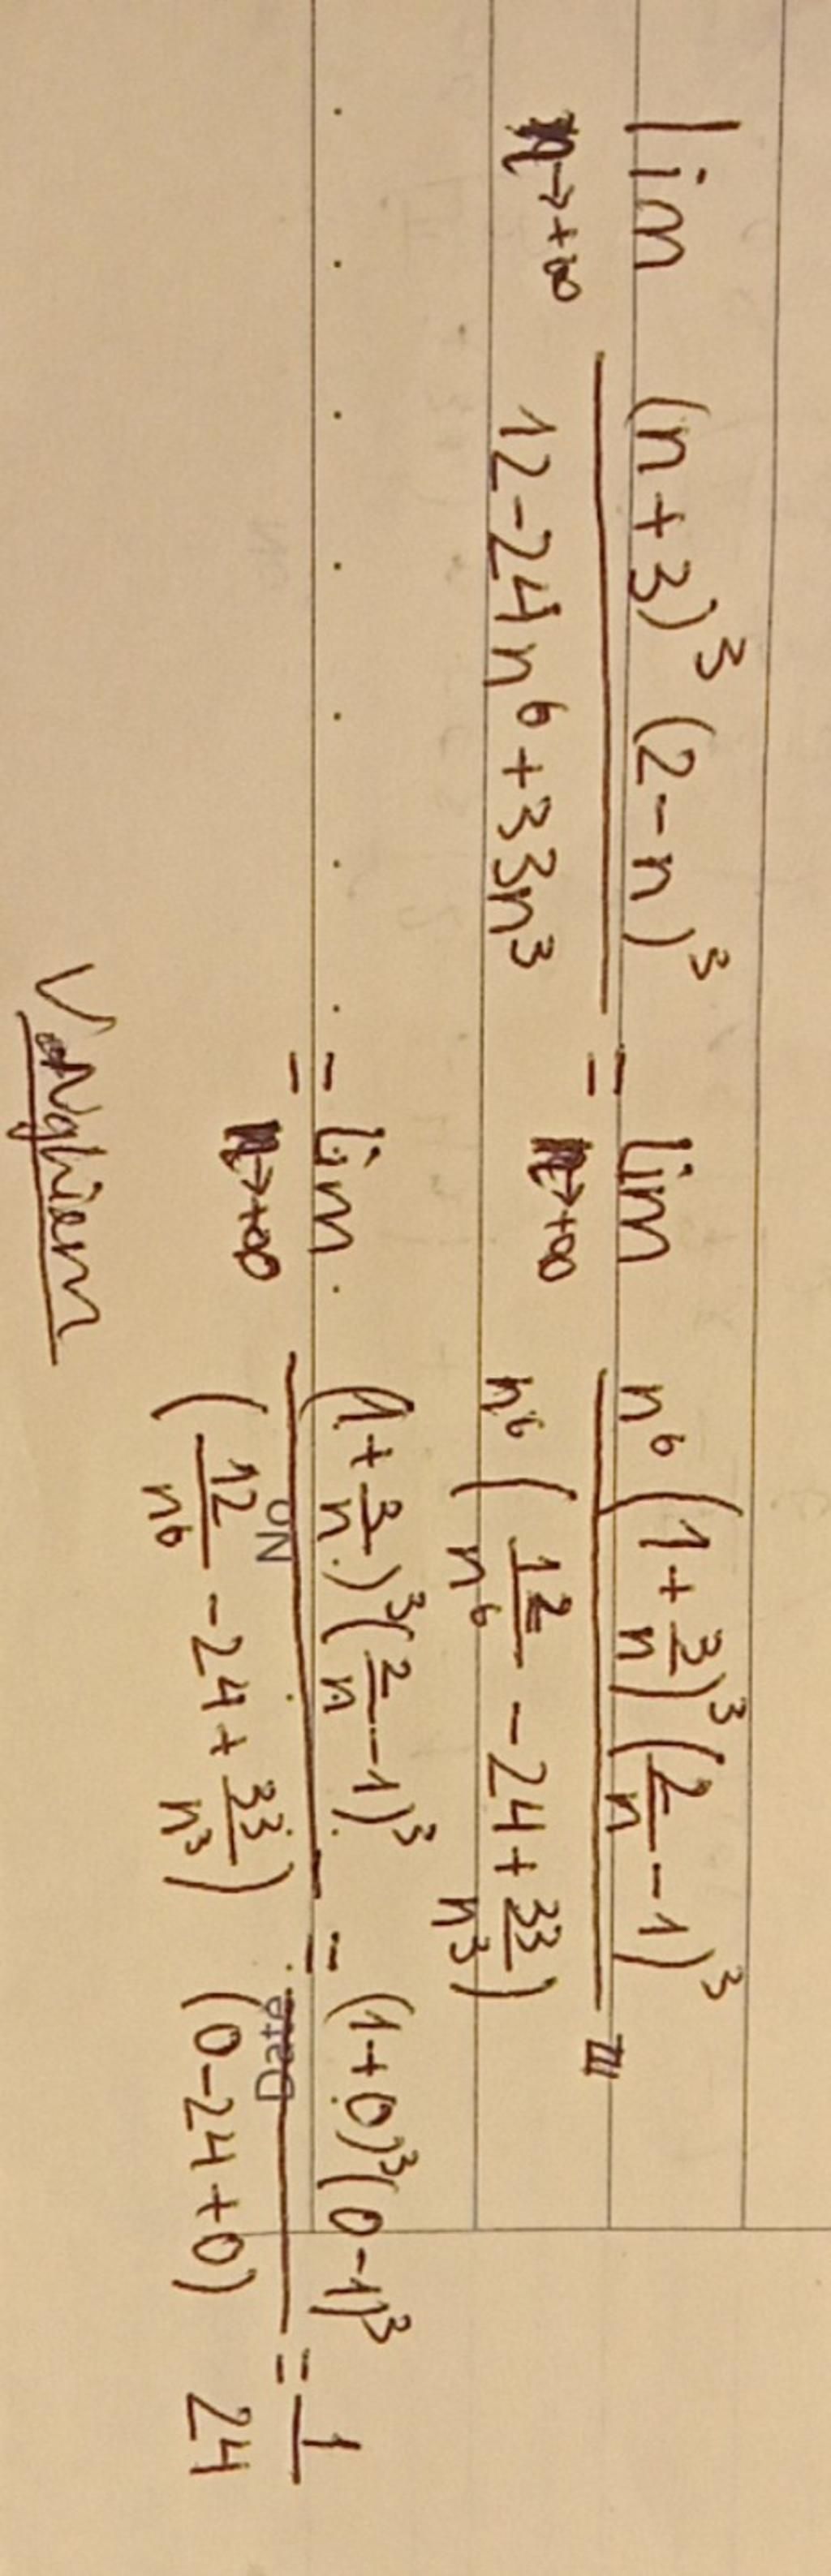 lim n→+∞ (n+3)³(2-n)³ / 12-24n⁶+33n³ = lim n→+∞ n⁶(1+3/n)³(2/n-1)³ / n⁶(12/n⁶-24+33/n³) =
= lim n→+∞ (1+3/n)³(2/n-1)³ / (12/n⁶-24+33/n³) = (1+0)³(0-1)³ / (0-24+0) = 1/24
No
Date